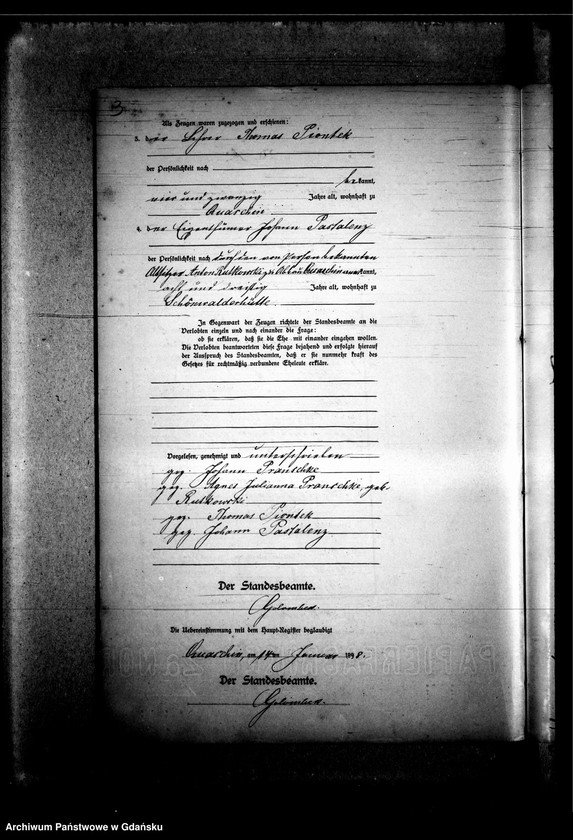 Als Zeugen waren zugezogen und erschienen:
3. der Lehrer Thomas Piontek
der Persönlichkeit nach
bekannt,
vier und zwanzig Jahre alt, wohnhaft zu
Quaschin
4. der Eigenthümer Johann Pastalenz
der Persönlichkeit nach durch den von Person bekannten
Altsitzer Anton Rutkowski zu Quaschin anerkannt,
acht und dreißig Jahre alt, wohnhaft zu
Schönwalderhütte
In Gegenwart der Zeugen richtete der Standesbeamte an die
Verlobten einzeln und nach einander die Frage:
ob sie erklären, daß sie die Ehe mit einander eingehen wollen.
Die Verlobten beantworteten diese Frage bejahend und erfolgte hierauf
der Ausspruch des Standesbeamten, daß er sie nunmehr kraft des
Gesetzes für rechtmäßig verbundene Eheleute erkläre.
Vorgelesen, genehmigt und unterschrieben
gez. Johann Pranschke
gez. Agnes Julianna Pranschke, geb.
Rutkowski
gez. Thomas Piontek
gez. Johann Pastalenz
Der Standesbeamte.
Die Uebereinstimmung mit dem Haupt-Register beglaubigt
Quaschin, am 14ten Januar 1898.
Der Standesbeamte.
Archiwum Państwowe w Gdańsku